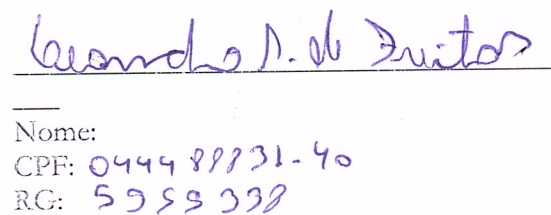 Leandro S. de Freitas
Nome:
CPF: 044488831-40
RG: 5959338